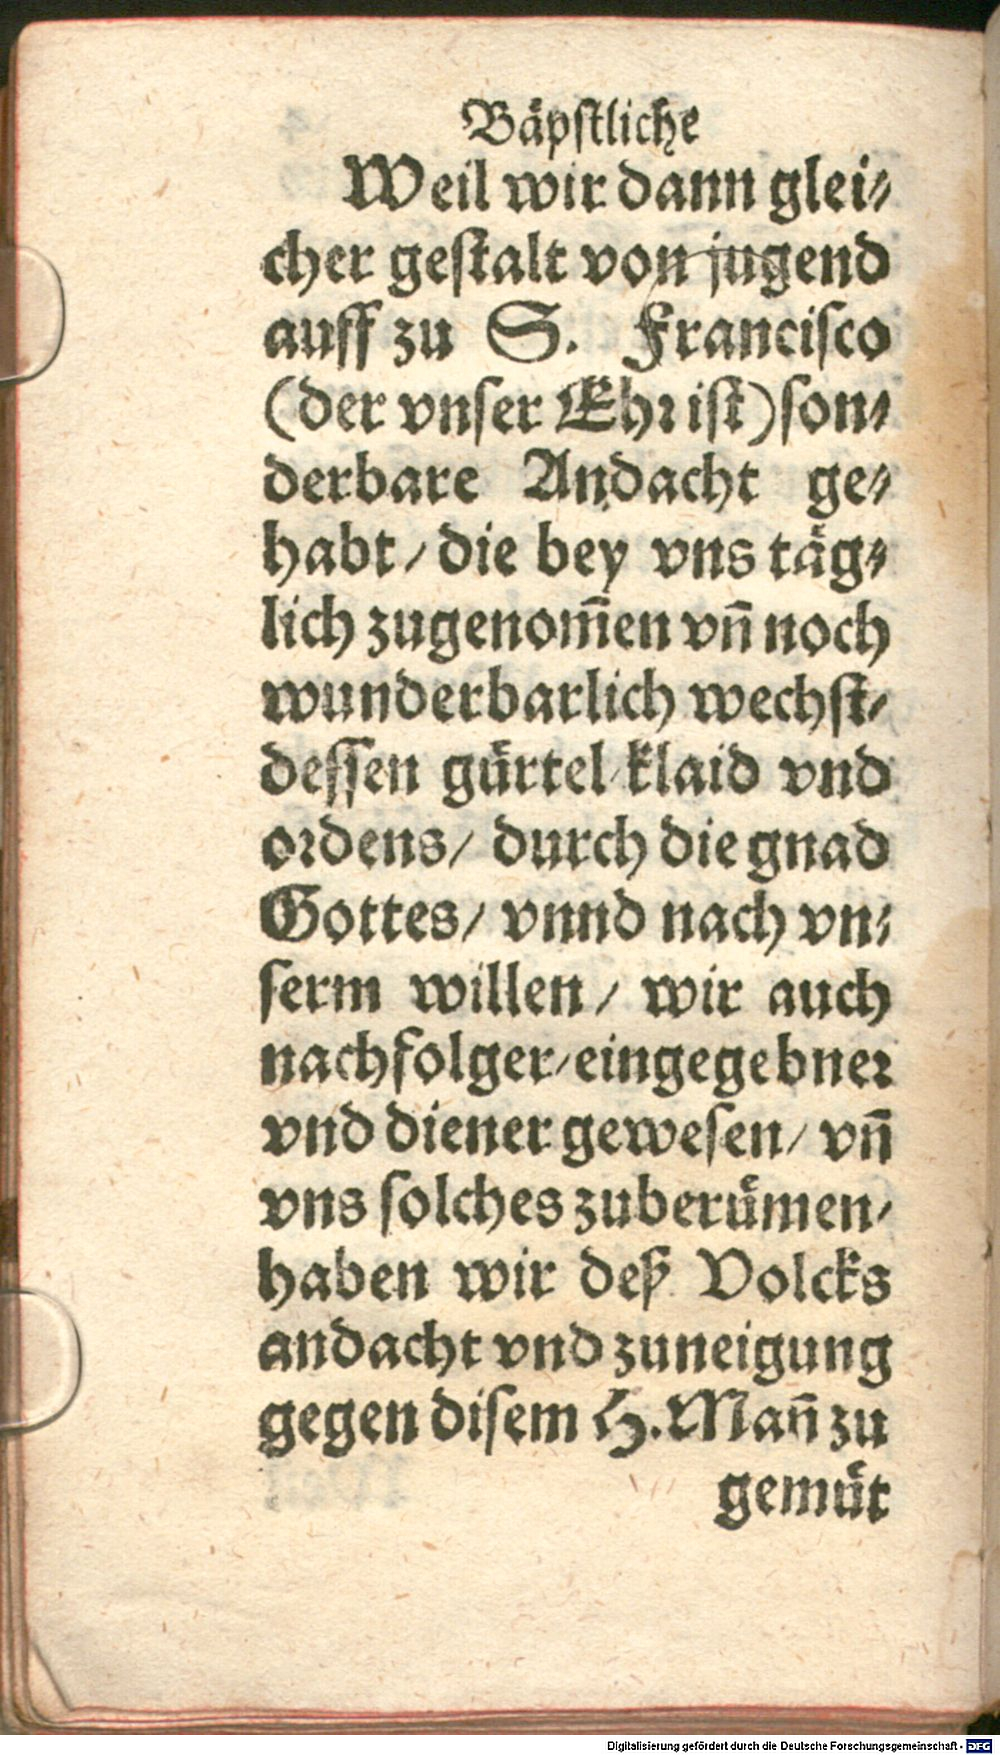 Bäpſtliche
Weil wir dann glei⸗
cher geſtalt von jugend
auff zu S. Franciſco
(der vnſer Ehꝛ iſt) ſon⸗
derbare Andacht ge⸗
habt / die bey vns täg⸗
lich zugenom̄en vn̄ noch
wunderbarlich wechſt /
deſſen gürtel / klaid vnd
oꝛdens / durch die gnad
Gottes / vnnd nach vn⸗
ſerm willen / wir auch
nachfolger / eingegebneꝛ
vnd diener geweſen / vn̄
vns ſolches zuberümen /
haben wir deß Volcks
andacht vnd zuneigung
gegen diſem H. Man̄ zu
gemüt
Digitalisierung gefördert durch die Deutsche Forschungsgemeinschaft - DFG